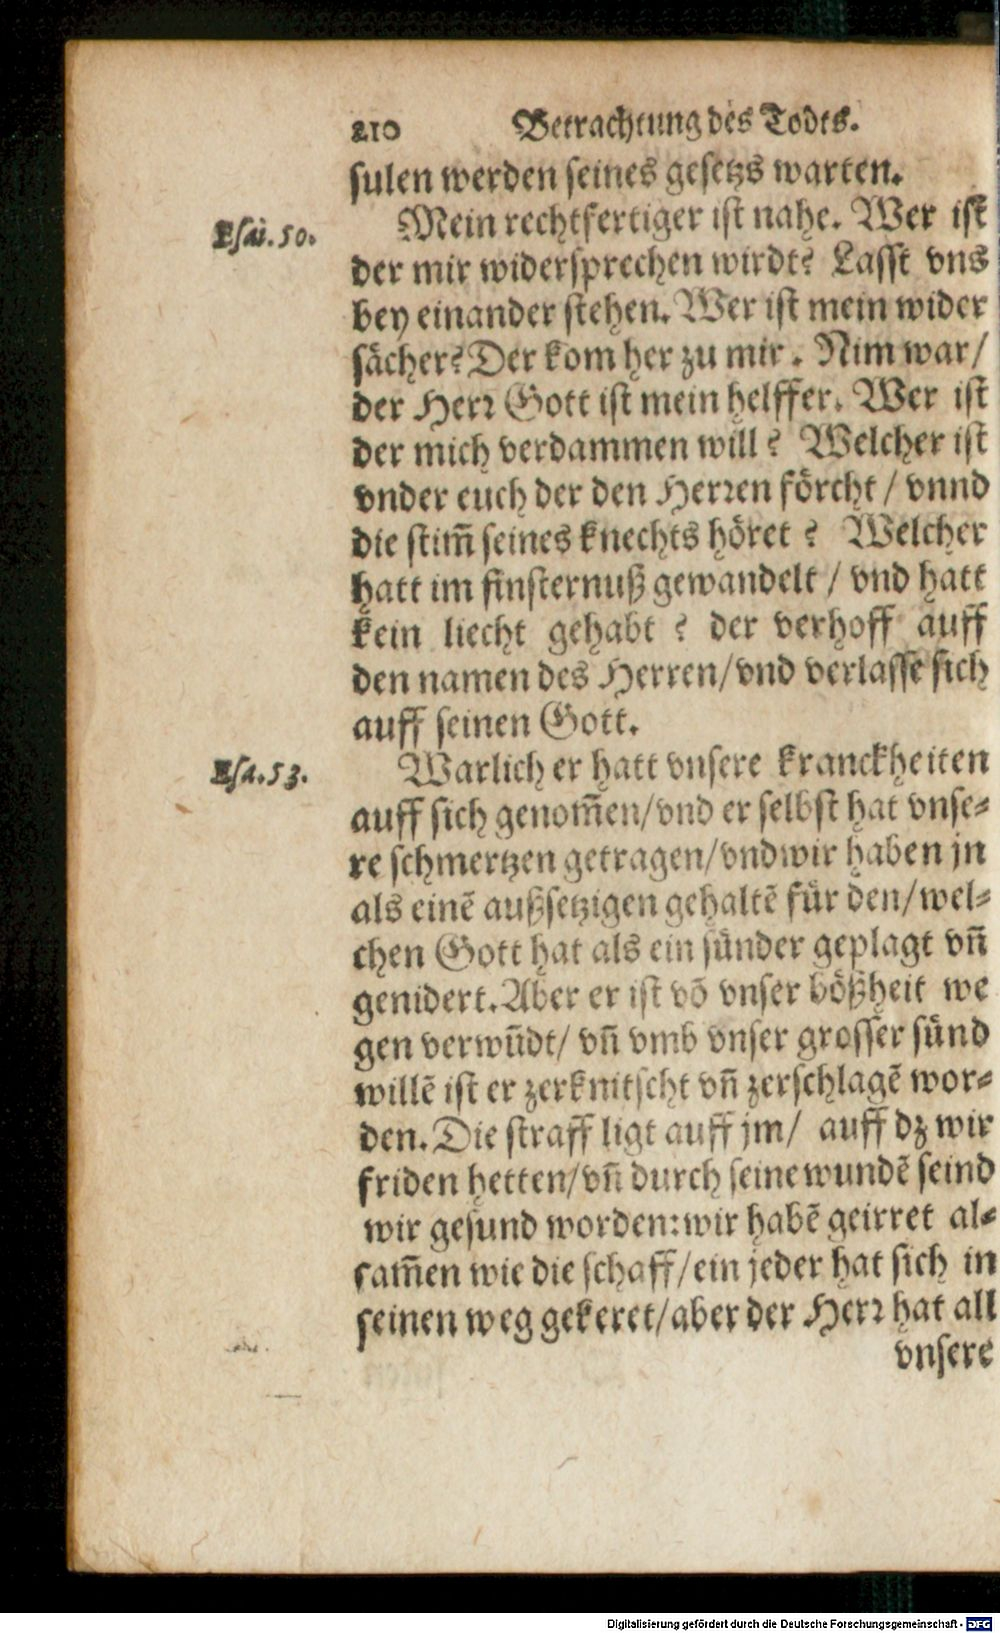 210 Betrachtung des Todts.
sulen werden seines gesetzs warten.
Esai. 50.
Mein rechtfertiger ist nahe. Wer ist
der mir widersprechen wirdt? Lasst vns
bey einander stehen. Wer ist mein wider
sächer? Der kom her zu mir. Nim war/
der Herr Gott ist mein helffer. Wer ist
der mich verdammen will? Welcher ist
vnder euch der den Herren förcht / vnnd
die stim̃ seines knechts höret? Welcher
hatt im finsternuß gewandelt / vnd hatt
kein liecht gehabt? der verhoff auff
den namen des Herren/vnd verlasse sich
auff seinen Gott.
Esa. 53.
Warlich er hatt vnsere kranckheiten
auff sich genom̃en/vnd er selbst hat vnse-
re schmertzen getragen/vndwir haben jn
als einẽ außsetzigen gehaltẽ für den/wel-
chen Gott hat als ein sünder geplagt vñ
genidert. Aber er ist võ vnser bößheit we
gen verwũdt/ vñ vmb vnser grosser sünd
willẽ ist er zerknitscht vñ zerschlagẽ wor-
den. Die straff ligt auff jm/ auff dz wir
friden hetten/vñ durch seine wundẽ seind
wir gesund worden: wir habẽ geirret al-
sam̃en wie die schaff/ein jeder hat sich in
seinen weg gekeret/aber der Herr hat all
vnsere
Digitalisierung gefördert durch die Deutsche Forschungsgemeinschaft - DFG